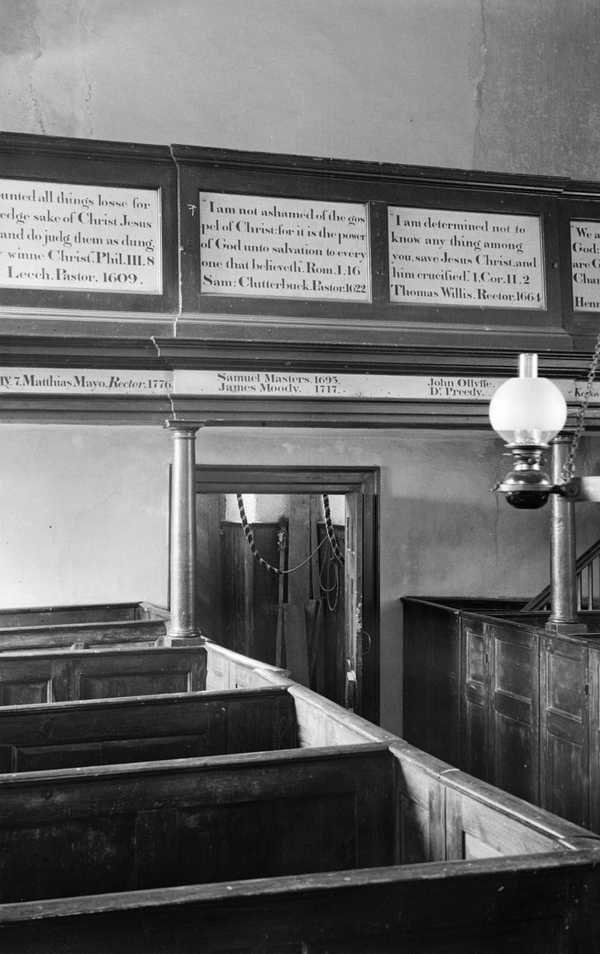 ounted all things losse for
edge sake of Christ Jesus
and do judg them as dung
winne Christ. Phil.III.8
Leech. Pastor. 1609.
I am not ashamed of the gos
pel of Christ: for it is the power
of God unto salvation to every
one that believeth. Rom.I.16
Sam: Clutterbuck. Pastor. 1622
I am determined not to
know any thing among
you, save Jesus Christ, and
him crucified. I. Cor. II. 2
Thomas Willis. Rector. 1664
We a
God:
are G
Chan
Henr
7. Matthias Mayo. Rector. 1776
Samuel Masters. 1693.
James Moody. 1717.
John Olyffe.
Dr. Preedy.